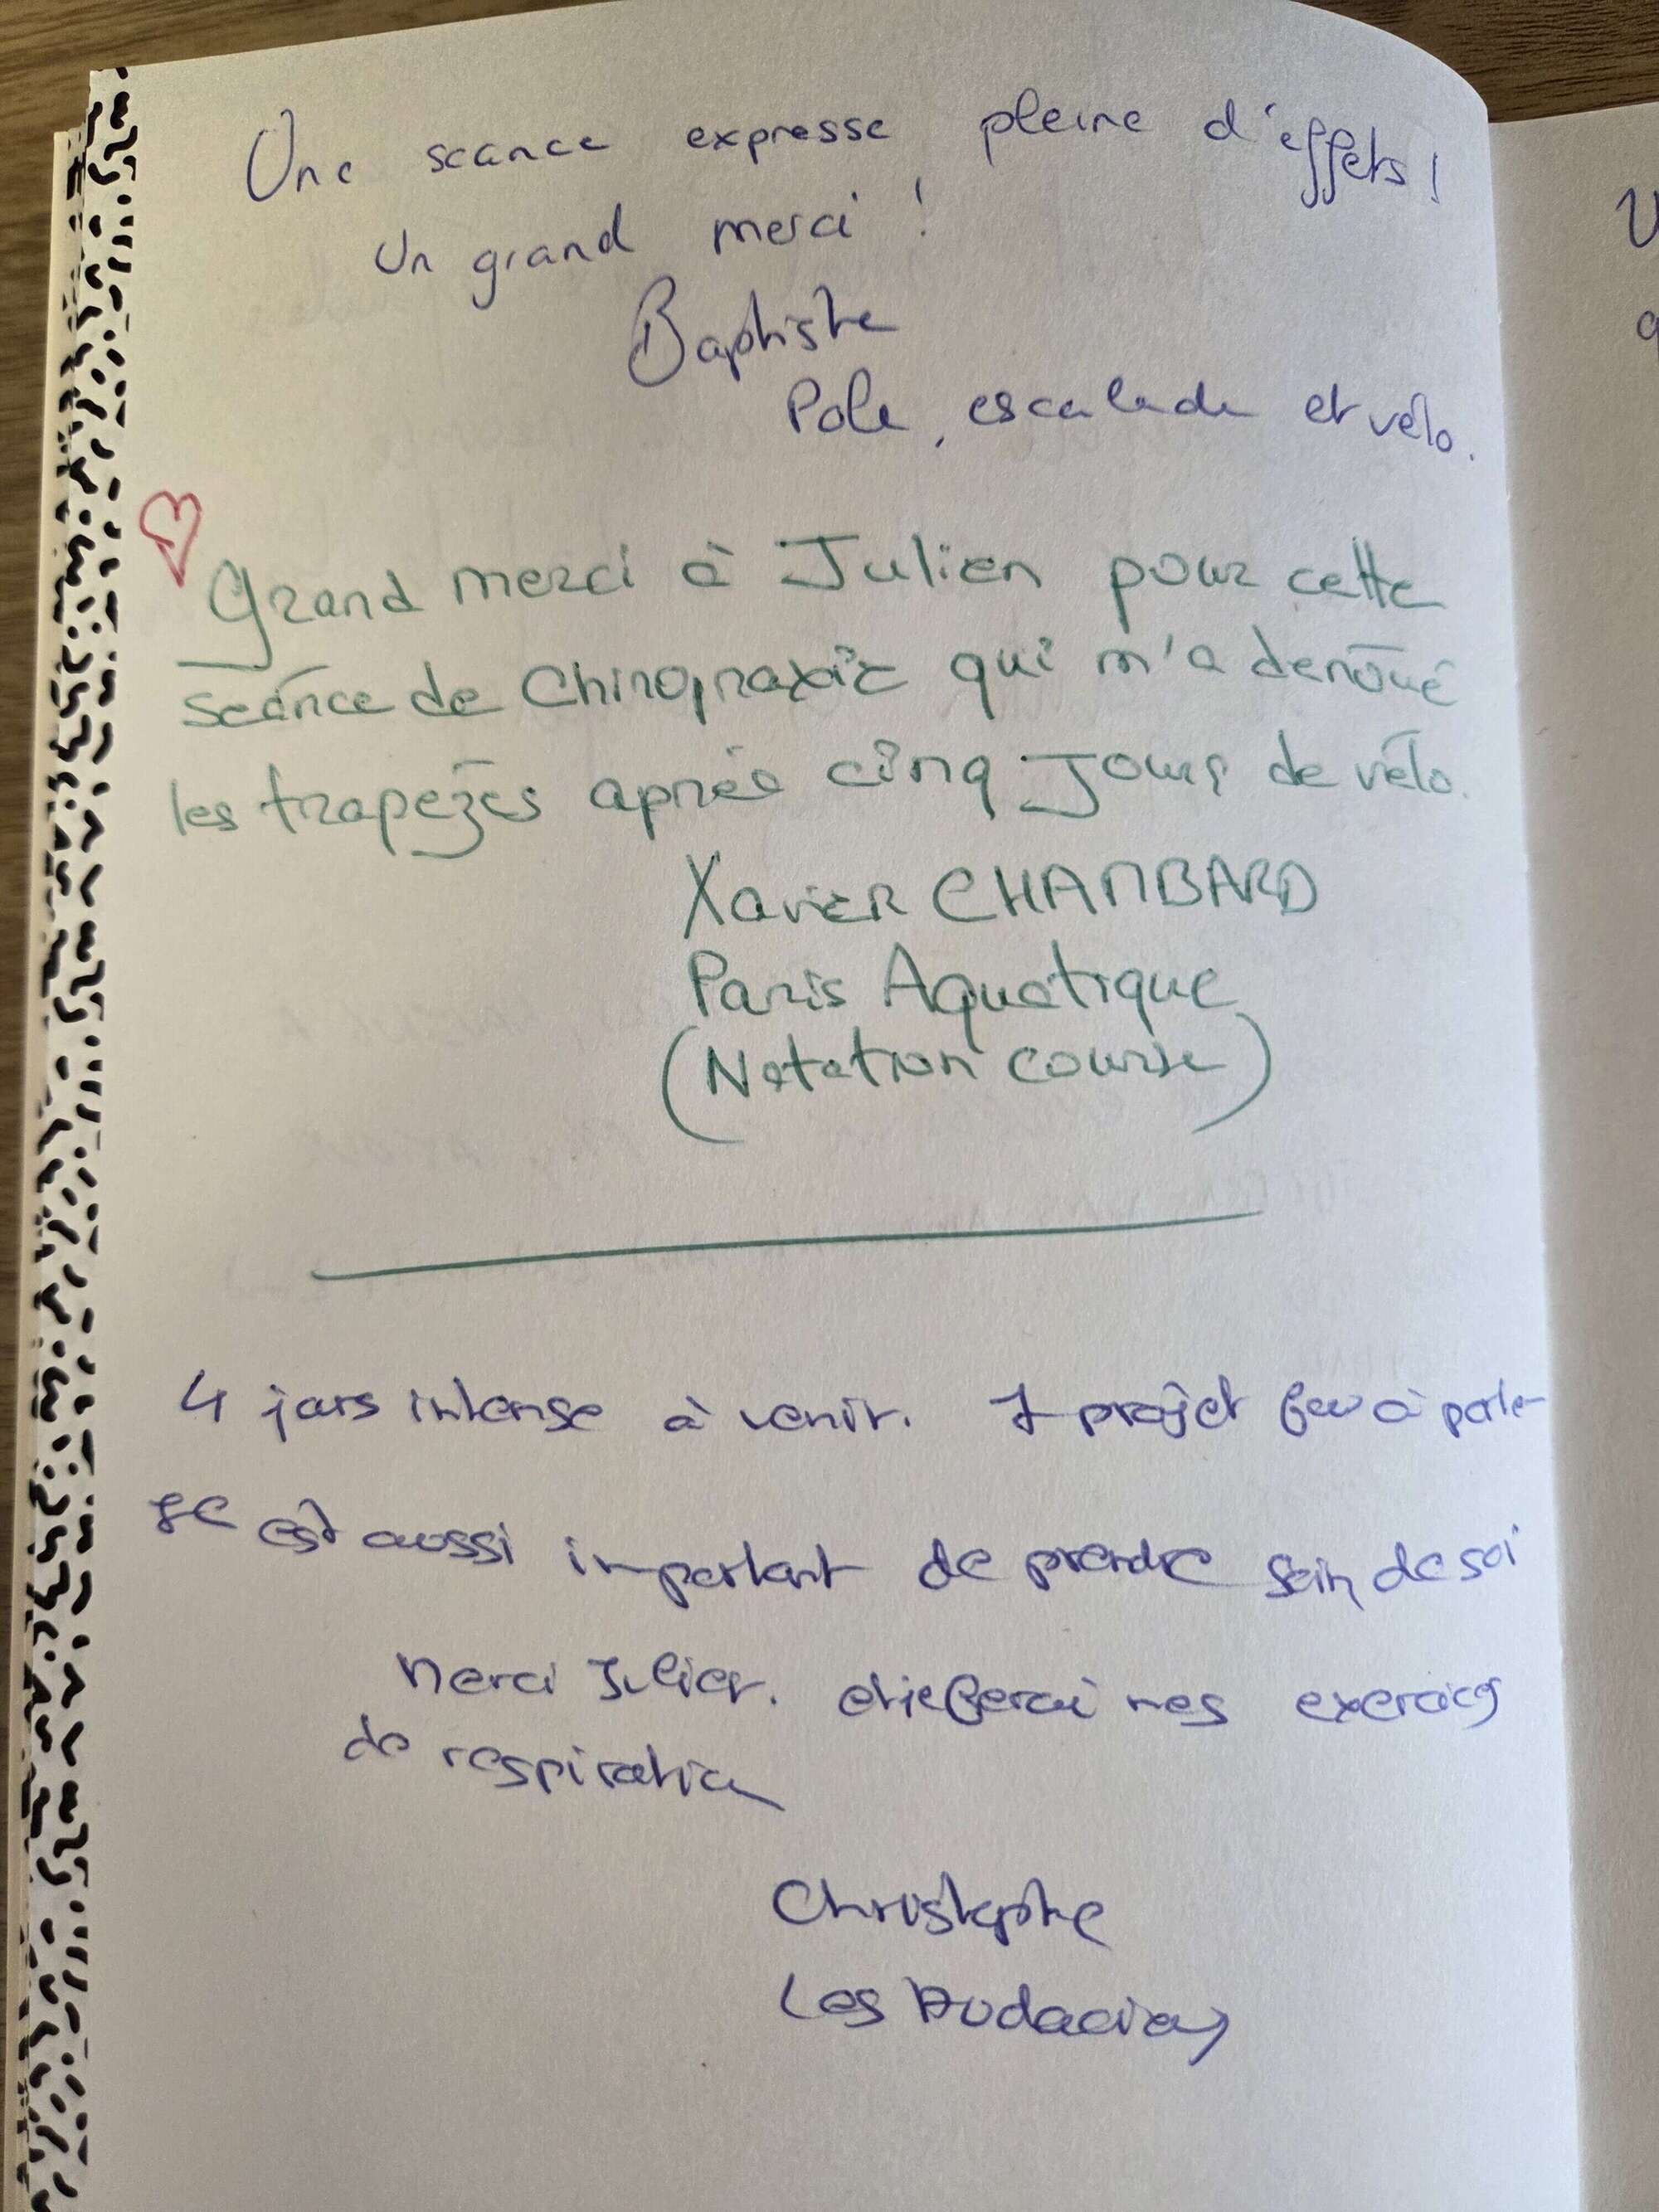 Une seance expresse pleine d'effets !
Un grand merci !
Baptiste
Pole, escalade et vélo.
Grand merci à Julien pour cette
séance de Chiropraxie qui m'a dénoué
les trapèzes après cinq jours de vélo.
Xavier CHAMBARD
Paris Aquatique
(Natation course)
4 jours intense à venir. 1 projet fou à parta-
ge est aussi important de prendre soin de soi
Merci Julien. et je ferai mes exercices
de respiration
Christophe
Les Audacieux
U
q